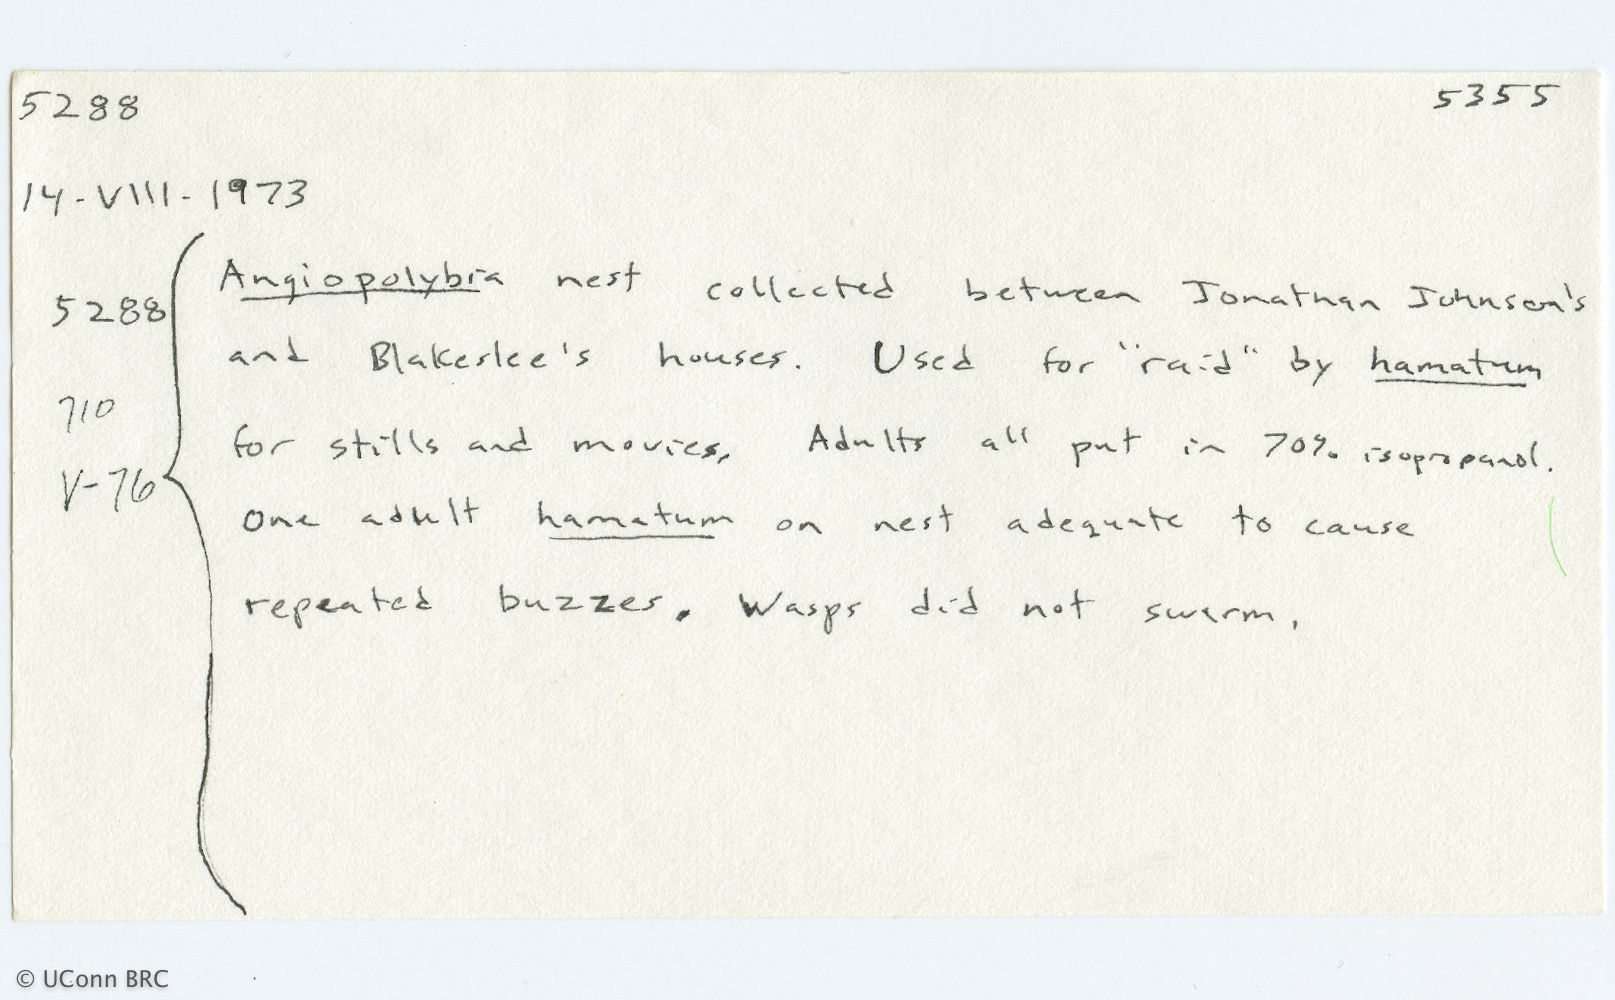 5288 5355
14-VIII-1973
5288 Angiopolybia nest collected between Jonathan Johnson's
and Blakeslee's houses. Used for "raid" by hamatum
710 for stills and movies. Adults all put in 70% isopropanol.
V-76 One adult hamatum on nest adequate to cause
repeated buzzes. Wasps did not swarm.
© UConn BRC